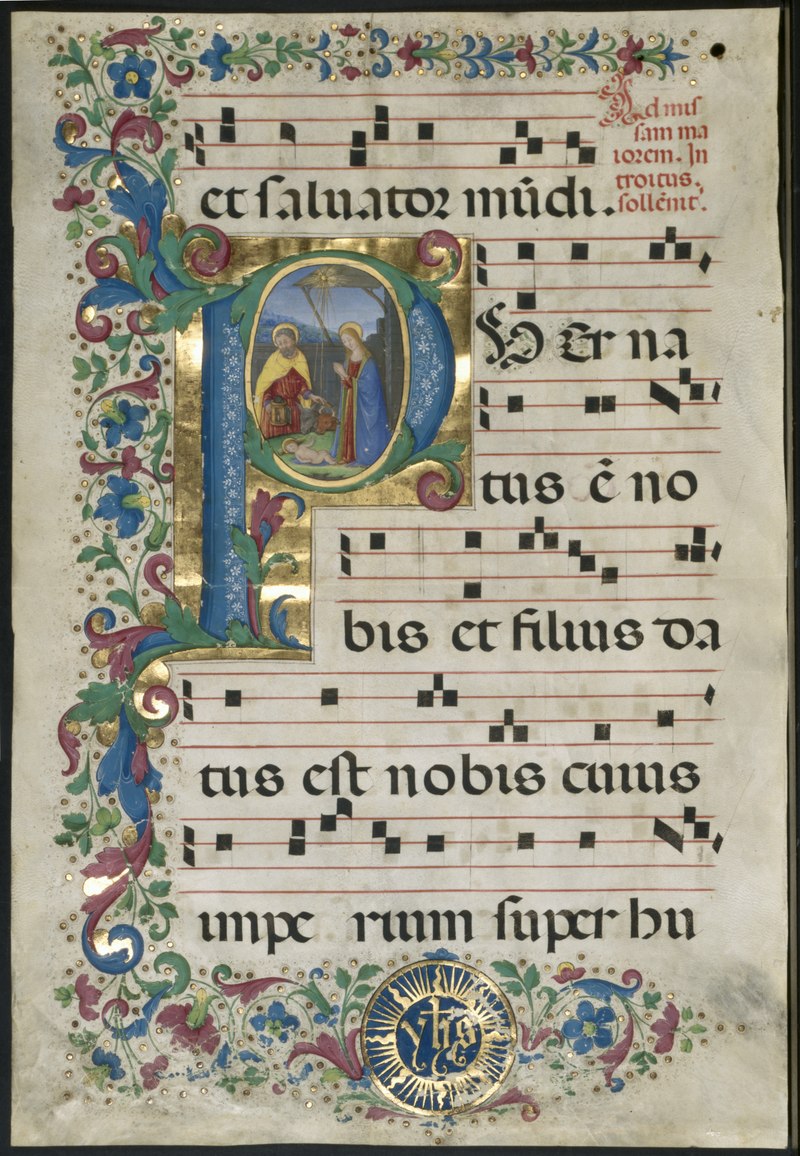 et saluator mu̅di.
Ad mis
sam ma
iorem. In
troitus.
solle̅nit̅.
PUer na
tus e̅ no
bis et filius da
tus est nobis cuius
impe rium super hu
yhs